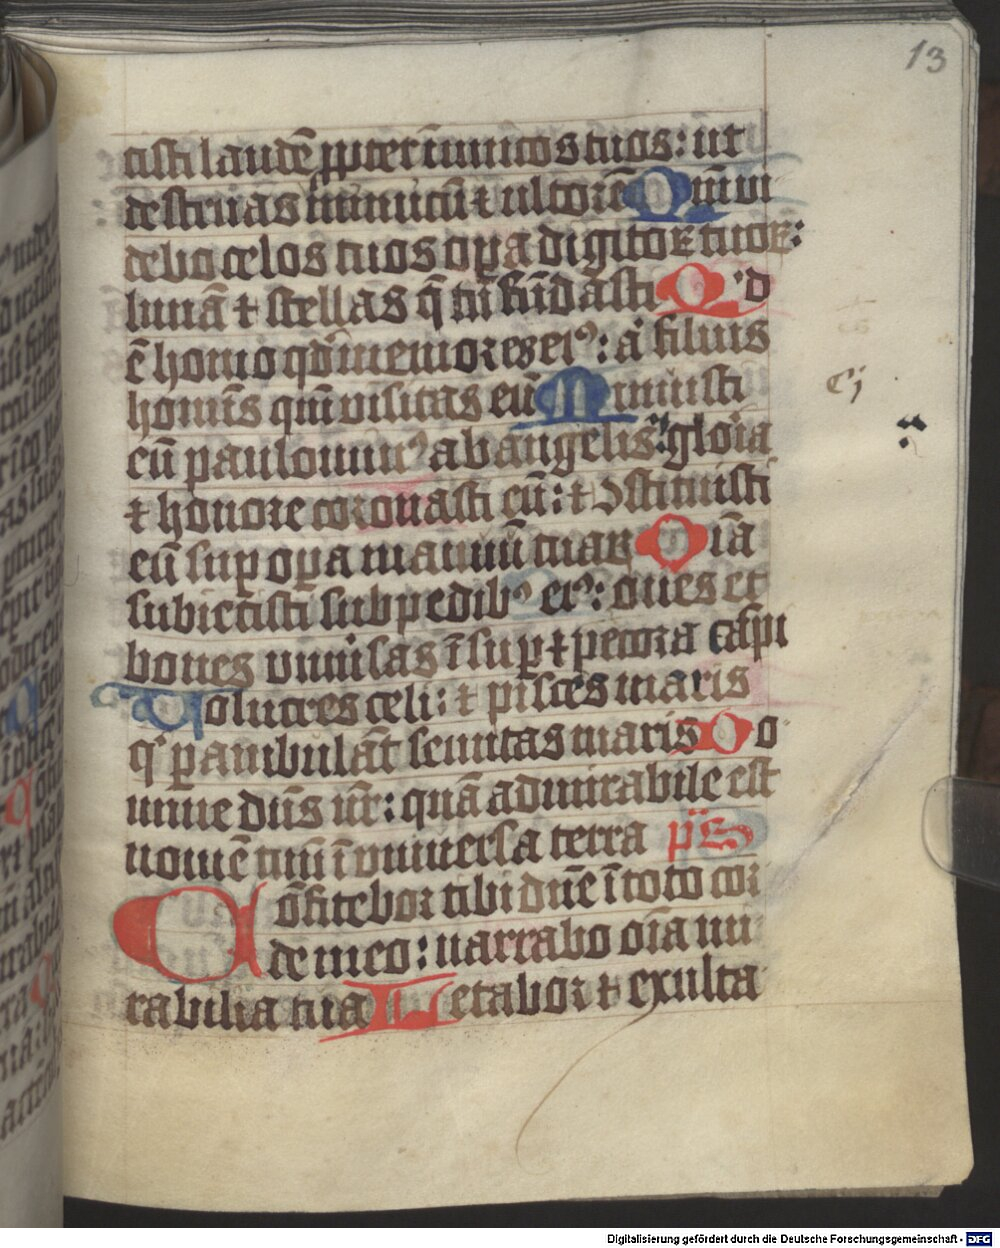 13
cisti laudē ꝓpter inimicos tuos: ut
destruas inimicū ⁊ ultorē Qm̄ ui
debo celos tuos oꝑa digitoꝝ tuoꝝ:
lunā ⁊ stellas q̄ tu fūdasti Q'd
ē homo qd̓ memor es eiꝰ: aͥ filius
homīs qm̄ uisitas eū Minuisti
eū paulominꝰ ab angelis: gloīa
⁊ honore coronasti eū: ⁊ ꝯstituisti
eū suꝑ oꝑa manuū tuaꝝ Oīa
subiecisti sub pedibꝰ eiꝰ: oues et
boues uniūsas īsuꝑ ⁊ pecora cāpi
Volucres celi: ⁊ pisces maris
q' ꝑambulāt semitas maris Do
mine dn̄s nr̄: quā admirabile est
nomē tuū ī uniuersa terra ps
Cōfitebor tibi dn̄e ī toto cor
de meo: narrabo oīa mi
rabilia tua Letabor ⁊ exulta
Digitalisierung gefördert durch die Deutsche Forschungsgemeinschaft - DFG